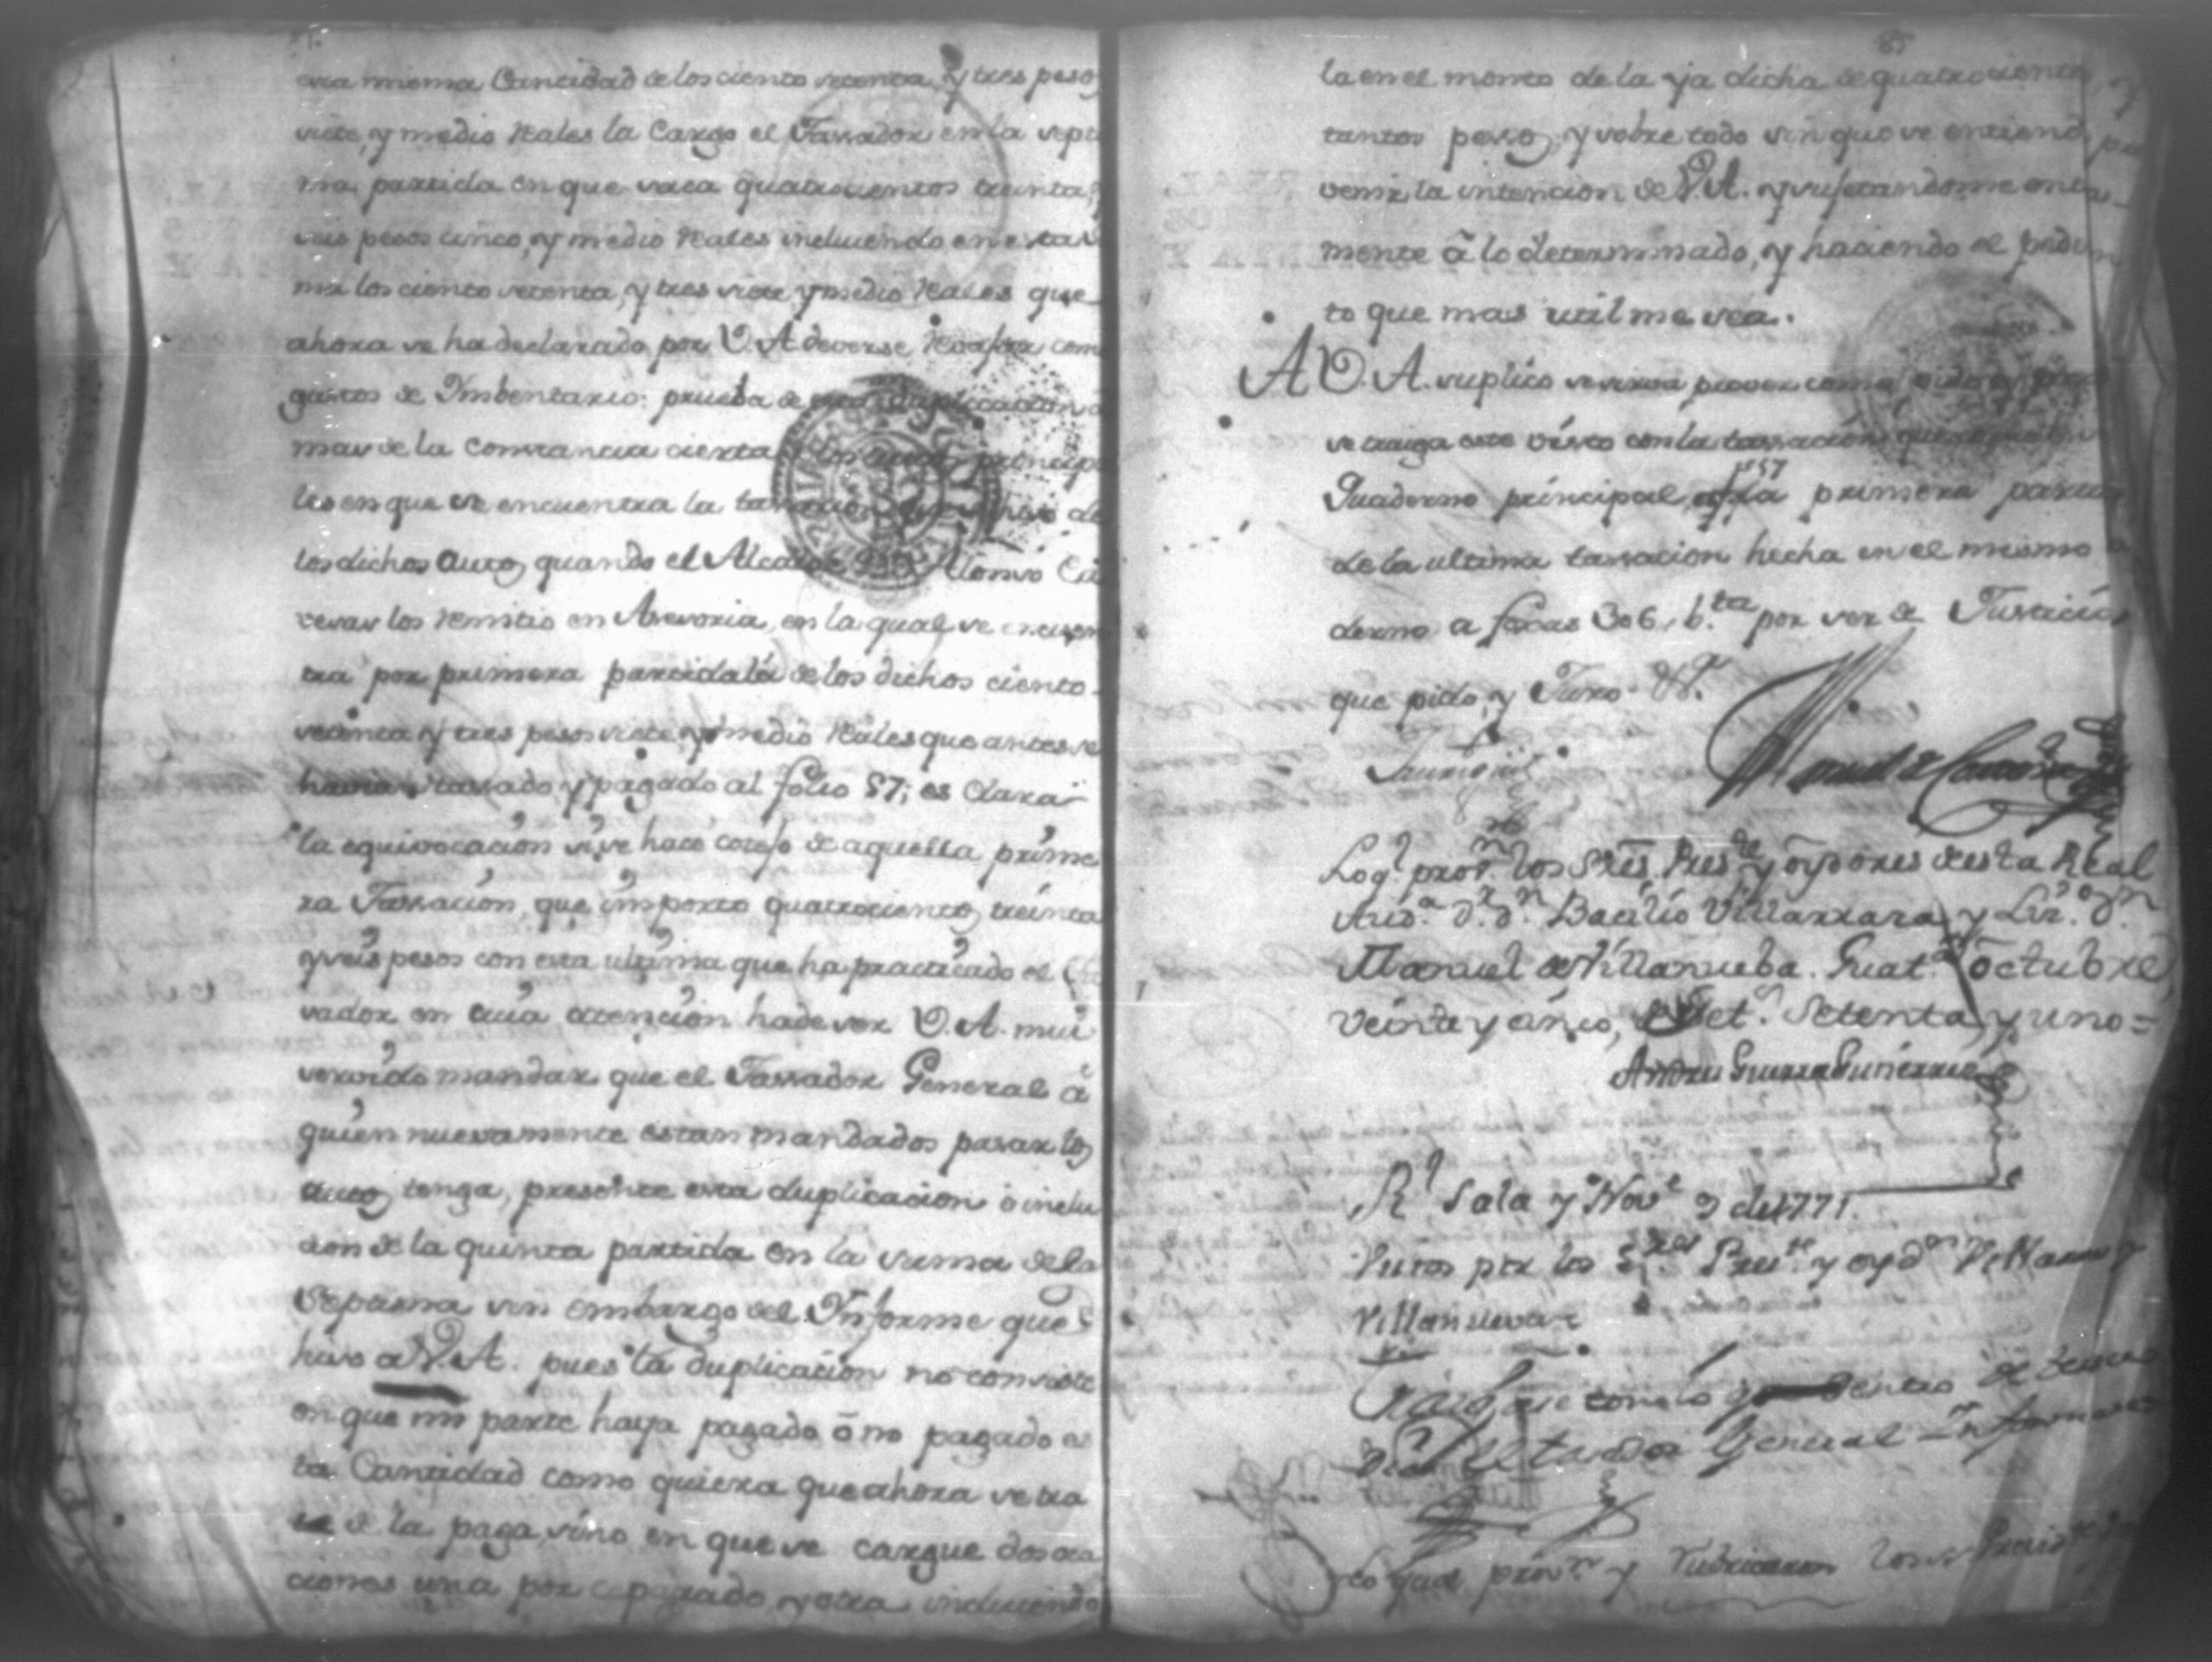 esta misma Cantidad de los ciento setenta, y tres pesos
siete, y medio Reales la Cargo el Tassador en la septi
ma partida en que saca quatrocientos treinta, y
seis pesos cinco, y medio Reales incluiendo en esta
los ciento setenta, y tres siete y medio Reales que
ahora se ha declarado por V. A. deverse como
gastos de Imbentario: prueba de esta duplicacion a
mas de la constancia cierta los autos principa
les en que se encuentra la tassacion de
los dichos autos quando el Alcalde Dn. Alonso
los Remitio en Asesoria, en la qual se encuen
tra por primera partida la de los dichos ciento
setenta y tres pesos siete, y medio Reales que antes se
havian tassado, y pagado al folio 57; es clara
la equivocacion si se hace cotejo de aquella prime
ra Tassacion, que importo quatrocientos treinta
y seis pesos con esta ultima que ha practicado el
sador en cuia atencion ha de ser V. A. mui
servido mandar que el Tassador General â
quien nuevamente estan mandados pasar los
autos tenga, presente esta duplicacion ô inclu
cion de la quinta partida en la suma de la
Septima sin embargo del Informe que
hiso a V. A. pues la duplicacion no consiste
en que mi parte haya pagado ô no pagado es
ta Cantidad como quiera que ahora se tra
te de la paga, sino en que se cargue dos oca
ciones una por separado, y otra incluiendo
la en el monto de la ya dicha de quatrocientos, y
tantos pesos, y sobre todo sin que se entienda
venir la intencion de V. A. y sugetandome enta
mente â lo determinado, y haciendo el pedim
to que mas util me sea.
A V. A. suplico se sirva proveer como pido
se traiga este visto con la tassacion
Quaderno principal f 57 primera partida
de la ultima tassacion hecha en el mismo
derno a foxas 306. b.ta por ser de Justicia
que pido, y Juro &a.
Manuel de
Log.l prov.n los S.res Pres.te y oydores de esta Real
Aud.a d.r d.n Basilio Villarrasa y Liz.do d.n
Manuel de Villanueba. Guat.a y octubre
veinte y cinco, de Set.s Setenta, y uno =
Andres Guerra Gutierrez
R.l Sala y Nov.e 9 de 1771.
Vistos por los S.res Pres.te y oyd.res Villarrasa y
Villanueva
dentro de tercero
dia el tasador General Informara
Lo qual prov.n y Rubricaron los S.s Presid.te